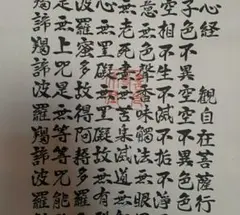 心經 觀自在菩薩行
子色不異空空不異色
空相不生不滅不垢不淨
意無色聲香味觸法無眼
無老死盡無苦集滅道無
罣礙無罣礙故無有
波羅蜜多故得阿耨多羅
是無上咒是無等等咒能
羯諦羯諦波羅羯諦波羅